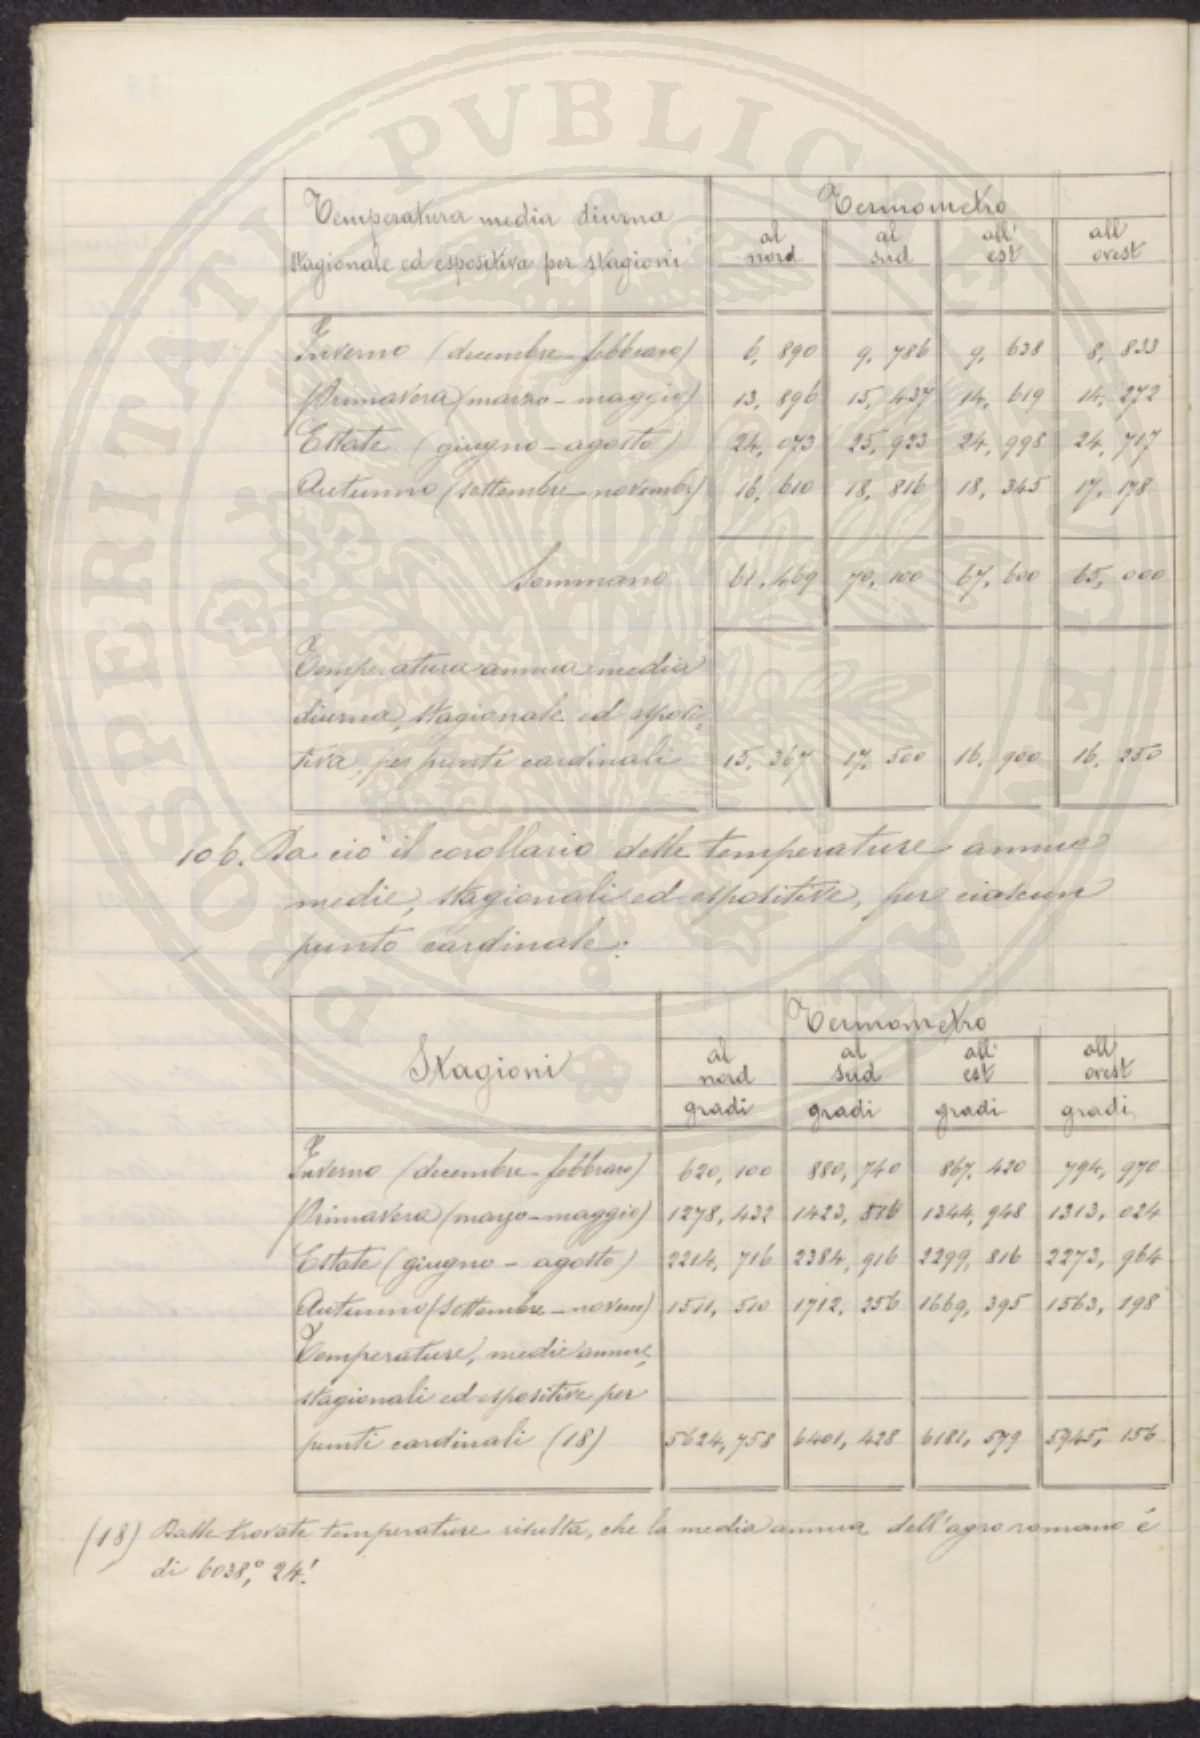 Temperatura media diurna
stagionale ed espositiva per stagioni
Termometro
al nord | al sud | all' est | all' ovest
Inverno (decembre - febbraro) 6, 890 | 9, 786 | 9, 638 | 8, 833
Primavera (marzo - maggio) 13, 896 | 15, 437 | 14, 619 | 14, 272
Estate (giugno - agosto) 24, 073 | 25, 923 | 24, 998 | 24, 717
Autunno (settembre - novembr) 16, 610 | 18, 816 | 18, 345 | 17, 178
Sommano 61, 469 | 70, 100 | 67, 600 | 65, 000
Temperatura annua media
diurna, stagionale ed esposi-
tiva, per punti cardinali 15, 367 | 17, 500 | 16, 900 | 16, 250
106. Da ciò il corollario delle temperature annue
medie, stagionali ed espositive, per ciascun
punto cardinale:
Stagioni
Termometro
al nord | al sud | all' est | all' ovest
gradi | gradi | gradi | gradi
Inverno (decembre - febbraro) 620, 100 | 880, 740 | 867, 420 | 794, 970
Primavera (marzo - maggio) 1278, 432 | 1423, 516 | 1344, 948 | 1313, 024
Estate (giugno - agosto) 2214, 716 | 2384, 916 | 2299, 816 | 2273, 964
Autunno (settembre - novem) 1511, 510 | 1712, 256 | 1669, 395 | 1563, 198
Temperature, medie annue,
stagionali ed espositive per
punti cardinali (18) 5624, 758 | 6401, 428 | 6181, 579 | 5945, 156
(18) Dalle trovate temperature risulta, che la media annua dell'agro romano è
di 6038°, 24'.
PROSPERITATI PVBLICAE